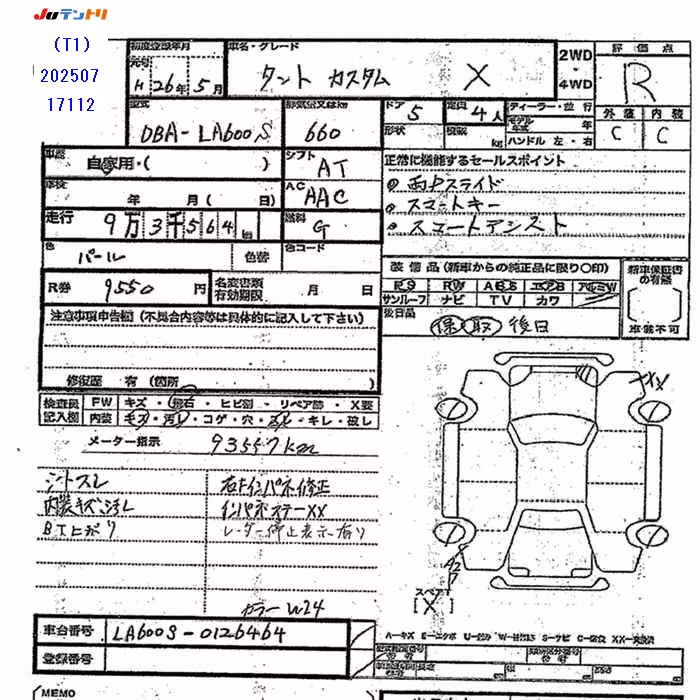 Juテントリ
(T1)
202507
17112
初度登録年月
元号
H 26年 5月
車名・グレード
タント カスタム X
2WD
・
4WD
評価点
R
外装 内装
C C
型式
DBA-LA600S
排気量又はkw
660
ドア 5
形状
定員 4人
積載 kg
ディーラー・並行
モデル年式 年
ハンドル 左・右
車歴
自家用・( )
シフト
AT
車検
年 月( 日)
AC
AAC
走行 9万3千564km
燃料
G
色
パール
色替
色コード
正常に機能するセールスポイント
両Pスライド
スマートキー
スマートアシスト
R券 9550 円
名変書類有効期限 月 日
装備品(新車からの純正品に限り○印)
PS PW ABS エアB アルミW
サンルーフ ナビ TV カワ
後日品
保 取 後日
新車保証書の有無
車載不可
注意事項申告欄(不具合内容等は具体的に記入して下さい)
修復歴 有(箇所 )
検査員記入欄
FW キズ・飛石・ヒビ割・リペア跡・X要
内装 キズ・汚レ・コゲ・穴・スレ・キレ・破レ
メーター指示 93557km
シートスレ
内装キズ汚レ
BT上がり
右Fインパネ修正
インパネステーXX
レーダー停止表示有り
カラーW24
XX
A2
スペア
[X]
車台番号 LA600S-0126464
登録番号
A-キズ E-エクボ U-凹み W-補修跡 S-サビ C-腐食 XX-交換済
MEMO